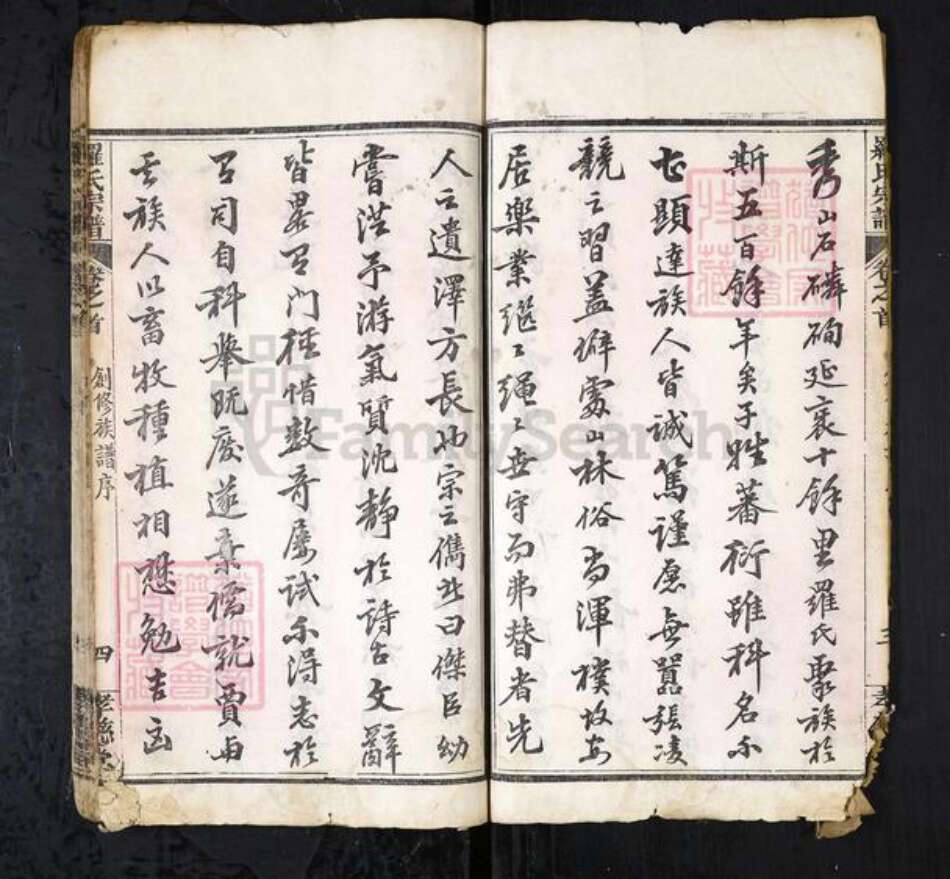 秀山石磷砌延袤十餘里羅氏聚族於
斯五百餘年矣子姓蕃衍雖科名不
甚顯達族人皆誠篤謹愿無囂張凌
競之習蓋僻處山林俗尚渾樸故安
居樂業繼繼繩繩世守而弗替者先
人之遺澤方長也宗之儁共曰傑臣幼
嘗從予游氣質沈靜於詩古文辭
皆畧有門徑惜數奇屢試不得志於
有司自科舉既廢遂棄儒就賈而
其族人以畜牧種植相懋勉吉函
羅氏宗譜
卷之首
創修族譜序
四
羅氏宗譜
卷之首
三
FamilySearch